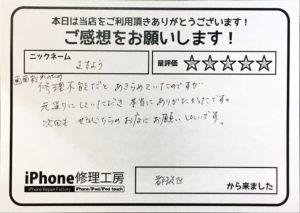 本日は当店をご利用頂きありがとうございます!
ご感想をお願いします!
ニックネーム
ますよう
星評価 ☆☆☆☆☆
修理不能だと あきらめていたのですが
元通りにしていただき 本当にありがとうございます。
次回も ぜひこちらの お店に お願いしたいです。
iPhone修理工房
iPhone Repair Factory iPhone/iPad/iPod touch
から来ました